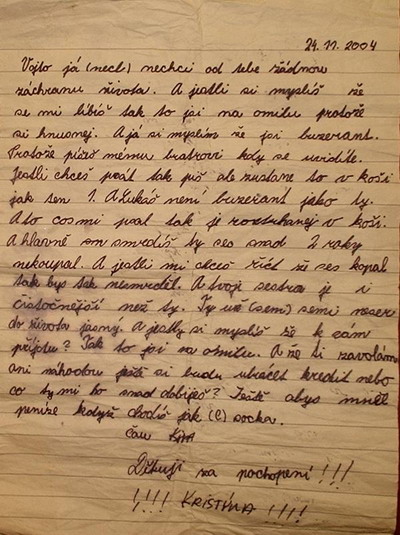 24. 11. 2004
Vojto já (necl) nechci od tebe žádnou
záchranu života. A jestli si myslíš že
se mi líbíš tak to jsi na omilu protože
si hnusnej. A já si myslím že jsi buzerant.
Protože píšeš mému bratrovi kdy se uvidíte.
Jestli chceš psát tak piš ale zustane to v koši
jak ten 1. A Lukáš není buzerant jako ty.
A to cos mi psal tak je roztrhanej v koši.
A hlavně sm smrdíš ty ses snad 2 roky
nekoupal. A jestli mi chceš říct že ses kopal
tak bys tak nesmrděl. A tvoje sestra je i
čistočnější než ty. Ty už (sem) semi neser
do života jasný. A jestly si myslíš že k vám
příjdu? Tak to jsi na omilu. A že ti zavolám
ani náhodou ještě si budu utrácet kredit nebo
co ty mi ho snad dobiješ? Ještě abys mněl
peníze když chodíš jak (c) socka.
čau
Děkuji za pochopení!!!
!!!! KRISTÝNA !!!!